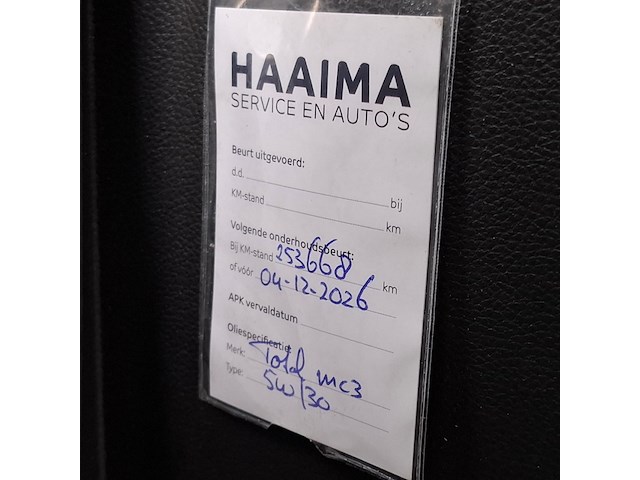 HAAIMA
SERVICE EN AUTO'S
Beurt uitgevoerd:
d.d. bij
KM-stand km
Volgende onderhoudsbeurt:
Bij KM-stand 253668 km
of vóór 04-12-2026
APK vervaldatum
Oliespecificatie:
Merk: Total mc3
Type: 5w/30